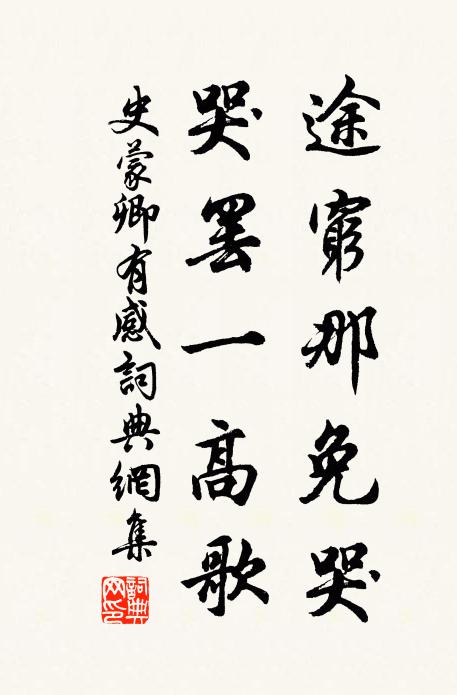 途窮那免哭
哭罷一高歌
史蒙卿有感詞典網集
詞典网印